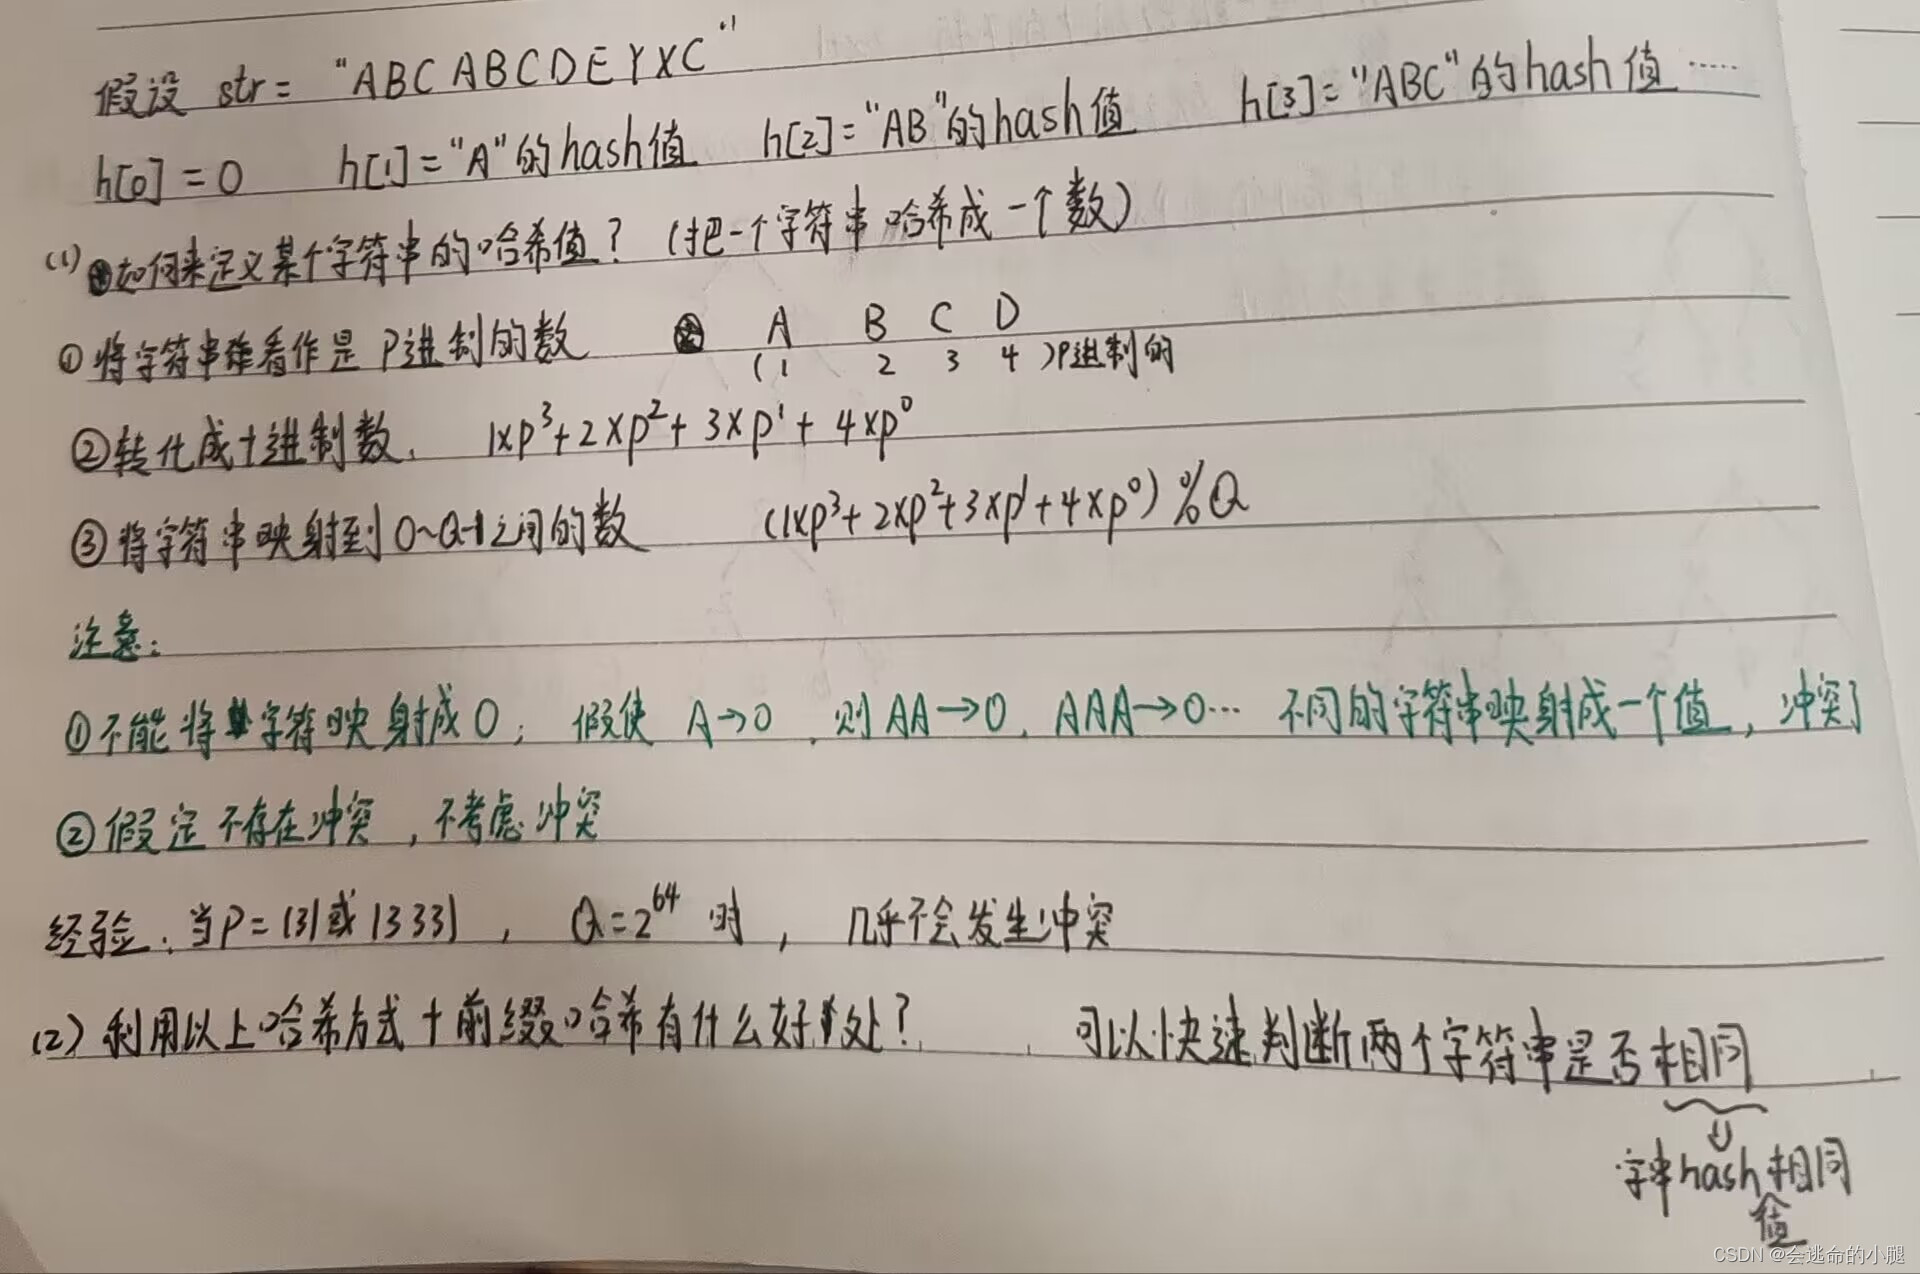 假设 str = "ABCABCDEYXC"
h[0]=0 h[1]="A"的hash值 h[2]="AB"的hash值 h[3]="ABC"的hash值……
(1) 如何来定义某个字符串的哈希值？(把一个字符串哈希成一个数)
①将字符串看作是P进制的数 A B C D
(1 2 3 4)P进制的
②转化成十进制数. 1×p³+2×p²+3×p¹+4×p⁰
③将字符串映射到0~Q-1之间的数 (1×p³+2×p²+3×p¹+4×p⁰)%Q
注意：
①不能将字符映射成0； 假使 A→0 . 则AA→0, AAA→0… 不同的字符串映射成一个值，冲突了
②假定不存在冲突，不考虑冲突
经验：当P=131或13331， Q=2⁶⁴ 时， 几乎不会发生冲突
(2) 利用以上哈希方式+前缀哈希有什么好处？ 可以快速判断两个字符串是否相同
⇓
字串hash值相同
CSDN @会逃命的小腿